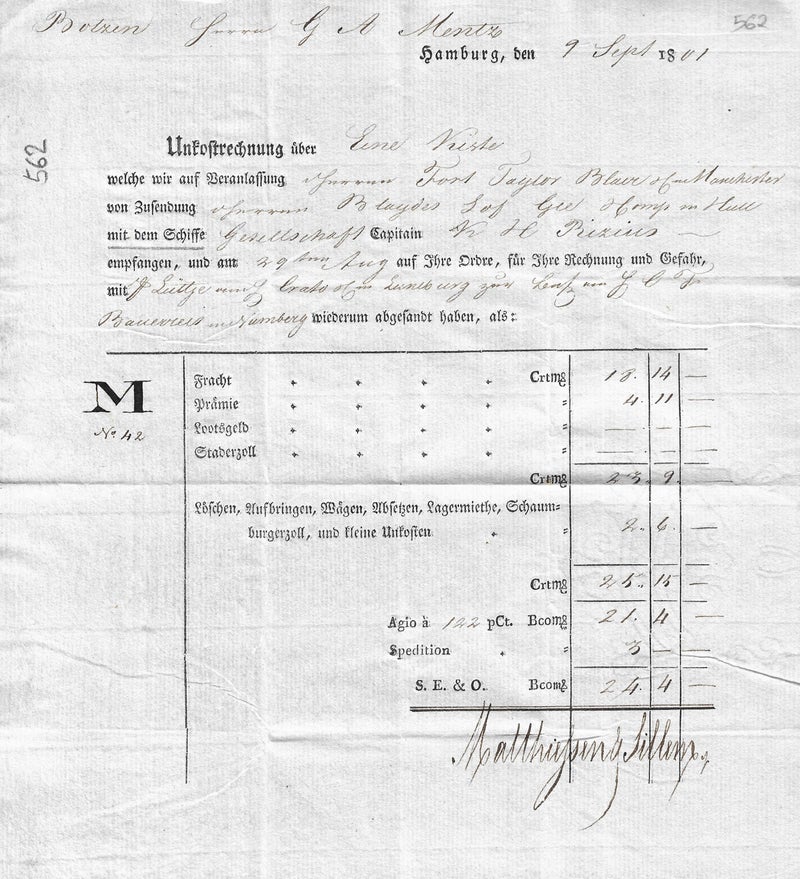 562
Botzen Herrn G A Mentz
Hamburg, den 9 Sept 1801
562
Unkostrechnung über Eine Kiste
welche wir auf Veranlassung Herren Fort Taylor Manchester
von Zusendung Herren Blaydes & Comp in Hull
mit dem Schiffe Gesellschaft Capitain H
empfangen, und am 29ten Aug auf Ihre Ordre, für Ihre Rechnung und Gefahr,
mit Lüttje in Luneburg zur
in wiederum abgesandt haben, als:
M
No 42
Fracht Crtmꝗ 18. 14 —
Prämie = 4. 11 —
Lootsgeld = — — —
Staderzoll = — — —
Crtmꝗ 23. 9. —
Löschen, Aufbringen, Wägen, Absetzen, Lagermiethe, Schaum-
burgerzoll, und kleine Unkosten = 2. 6. —
Crtmꝗ 25. 15 —
Agio à 122 pCt. Bcomꝗ 21. 4 —
Spedition 3 — —
S. E. & O. Bcomꝗ 24. 4 —
Matthiessen & Sillem